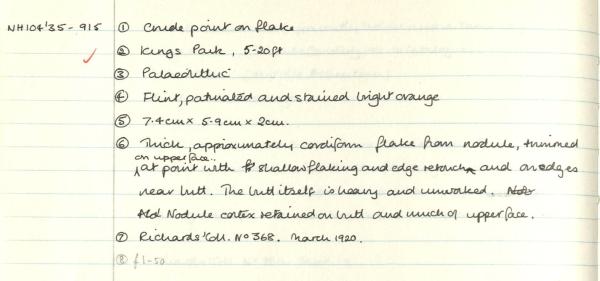 NH104'35-915 ① Crude point on flake
② Kings Park, 5-20ft
③ Palaeolithic
④ Flint, patinated and stained bright orange
⑤ 7.4cm x 5.9cm x 2cm.
⑥ Thick, approximately cordiform flake from nodule, trimmed
on upper face
at point with shallow flaking and edge retouch and on edges
near butt. The butt itself is heavy and unworked.
Nodule cortex retained on butt and much of upper face.
⑦ Richards' Coll. No 368. March 1920.
⑧ £1-50